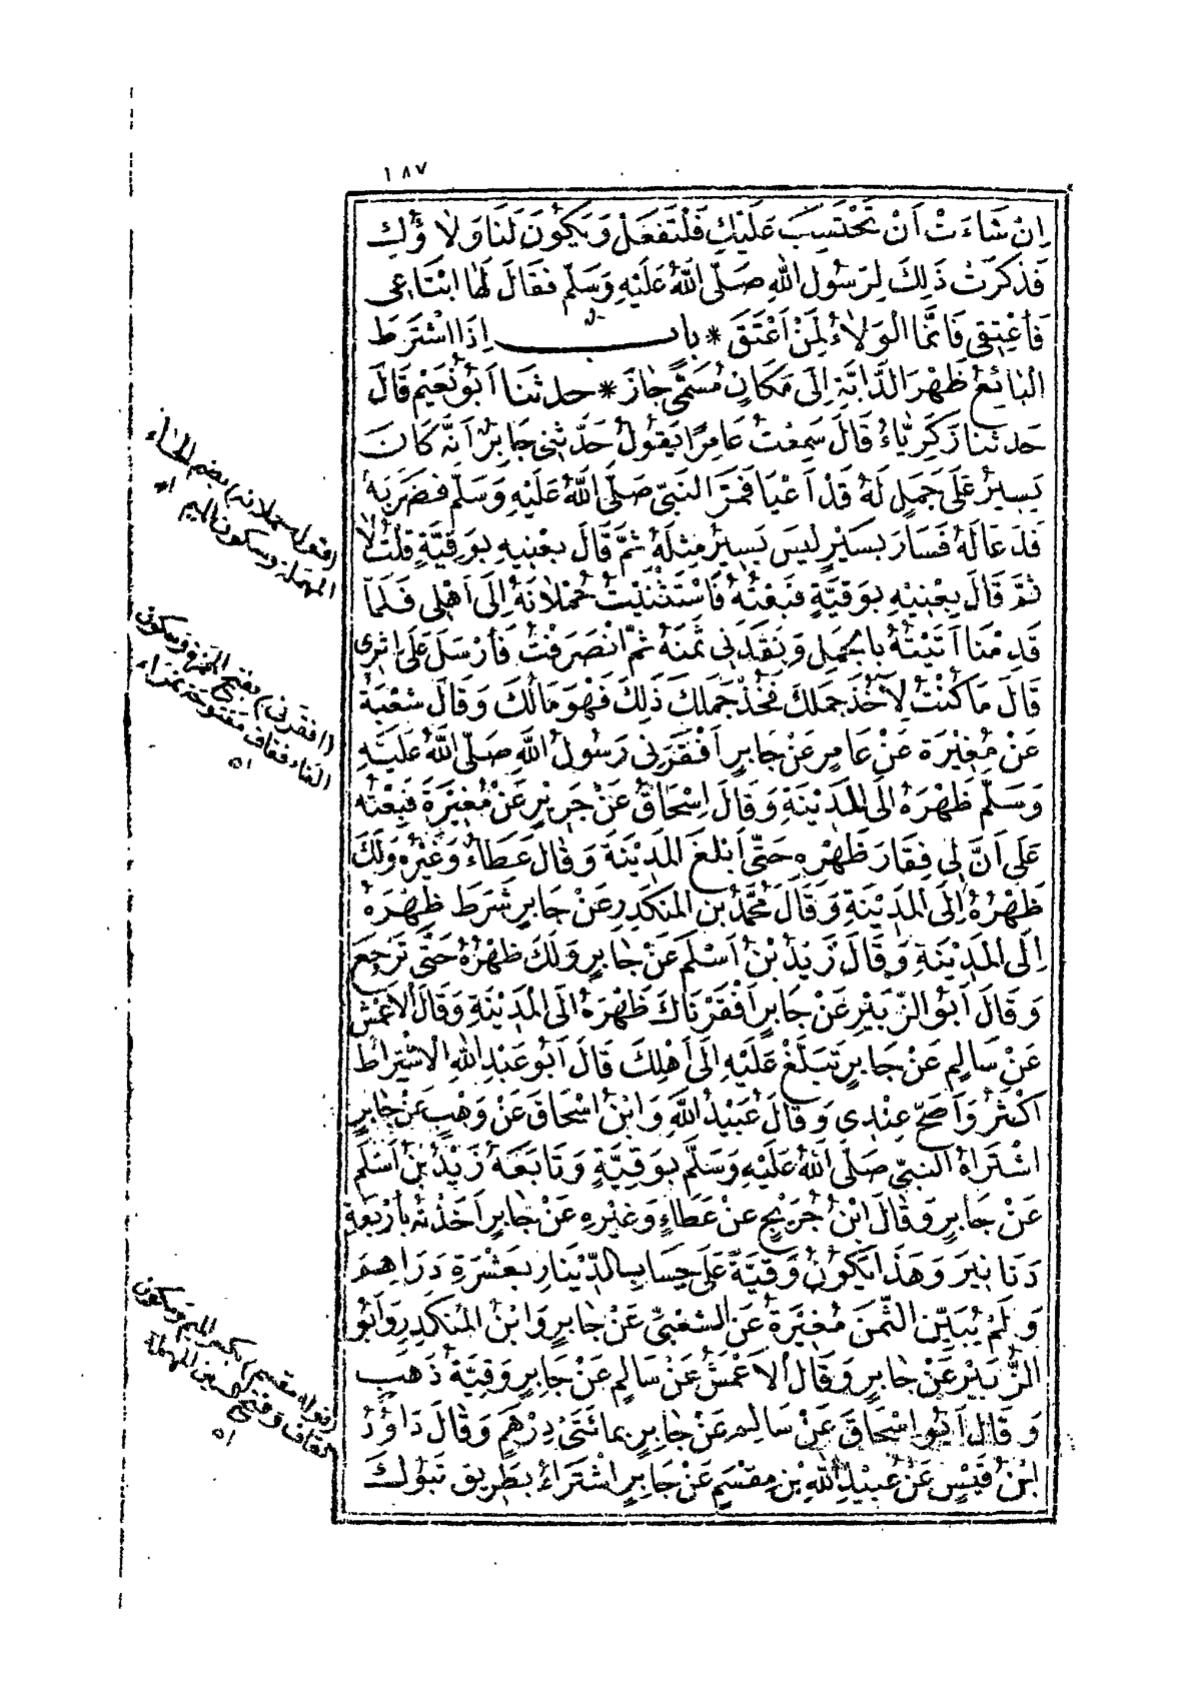 ١٨٧
اِنْ شَاءَتْ اَنْ تَحْتَسِبَ عَلَيْكِ فَلْتَفْعَلْ وَيَكُونَ لَنَا وَلَاؤُكِ
فَذَكَرَتْ ذَلِكَ لِرَسُولِ اللهِ صَلَّى اللهُ عَلَيْهِ وَسَلَّمَ فَقَالَ لَهَا ابْتَاعِي
فَاَعْتِقِي فَاِنَّمَا الْوَلَاءُ لِمَنْ اَعْتَقَ * باب اِذَا اشْتَرَطَ
الْبَائِعُ ظَهْرَ الدَّابَّةِ اِلَى مَكَانٍ مُسَمًّى جَازَ * حدثنا اَبُو نُعَيْمٍ قَالَ
حَدثنا زَكَرِيَّاءُ قَالَ سَمِعْتُ عَامِرًا يَقُولُ حَدَّثَنِي جَابِرٌ اَنَّهُ كَانَ
يَسِيرُ عَلَى جَمَلٍ لَهُ قَدْ اَعْيَا فَمَرَّ النَّبِيُّ صَلَّى اللهُ عَلَيْهِ وَسَلَّمَ فَضَرَبَهُ
فَدَعَا لَهُ فَسَارَ بِسَيْرٍ لَيْسَ يَسِيرُ مِثْلَهُ ثُمَّ قَالَ بِعْنِيهِ بِوَقِيَّةٍ قُلْتُ لَا
ثُمَّ قَالَ بِعْنِيهِ بِوَقِيَّةٍ فَبِعْتُهُ فَاسْتَثْنَيْتُ حُمْلَانَهُ اِلَى اَهْلِي فَلَمَّا
قَدِمْنَا اَتَيْتُهُ بِالْجَمَلِ وَنَقَدَنِي ثَمَنَهُ ثُمَّ انْصَرَفْتُ فَاَرْسَلَ عَلَى اِثْرِي
قَالَ مَا كُنْتُ لِآخُذَ جَمَلَكَ فَخُذْ جَمَلَكَ ذَلِكَ فَهُوَ مَالُكَ وَقَالَ شُعْبَةُ
عَنْ مُغِيْرَةَ عَنْ عَامِرٍ عَنْ جَابِرٍ اَفْقَرَنِي رَسُولُ اللهِ صَلَّى اللهُ عَلَيْهِ
وَسَلَّمَ ظَهْرَهُ اِلَى الْمَدِيْنَةِ وَقَالَ اِسْحَاقُ عَنْ جَرِيرٍ عَنْ مُغِيْرَةَ فَبِعْتُهُ
عَلَى اَنَّ لِي فَقَارَ ظَهْرِهِ حَتَّى اَبْلُغَ الْمَدِيْنَةَ وَقَالَ عَطَاءٌ وَغَيْرُهُ وَلَكَ
ظَهْرُهُ اِلَى الْمَدِيْنَةِ وَقَالَ مُحَمَّدُ بْنُ الْمُنْكَدِرِ عَنْ جَابِرٍ شَرَطَ ظَهْرَهُ
اِلَى الْمَدِيْنَةِ وَقَالَ زَيْدُ بْنُ اَسْلَمَ عَنْ جَابِرٍ وَلَكَ ظَهْرُهُ حَتَّى تَرْجِعَ
وَقَالَ اَبُو الزُّبَيْرِ عَنْ جَابِرٍ اَفْقَرْنَاكَ ظَهْرَهُ اِلَى الْمَدِيْنَةِ وَقَالَ الْاَعْمَشُ
عَنْ سَالِمٍ عَنْ جَابِرٍ تَبَلَّغْ عَلَيْهِ اِلَى اَهْلِكَ قَالَ اَبُو عَبْدِ اللهِ الْاشْتِرَاطُ
اَكْثَرُ وَاَصَحُّ عِنْدِي وَقَالَ عُبَيْدُ اللهِ وَابْنُ اِسْحَاقَ عَنْ وَهْبٍ عَنْ جَابِرٍ
اشْتَرَاهُ النَّبِيُّ صَلَّى اللهُ عَلَيْهِ وَسَلَّمَ بِوَقِيَّةٍ وَتَابَعَهُ زَيْدُ بْنُ اَسْلَمَ
عَنْ جَابِرٍ وَقَالَ ابْنُ جُرَيْجٍ عَنْ عَطَاءٍ وَغَيْرِهِ عَنْ جَابِرٍ اَخَذْتُهُ بِاَرْبَعَةِ
دَنَانِيرَ وَهَذَا يَكُونُ وَقِيَّةً عَلَى حِسَابِ الدِّيْنَارِ بِعَشْرَةِ دَرَاهِمَ
وَلَمْ يُبَيِّنِ الثَّمَنَ مُغِيْرَةُ عَنِ الشَّعْبِيِّ عَنْ جَابِرٍ وَابْنُ الْمُنْكَدِرِ وَاَبُو
الزُّبَيْرِ عَنْ جَابِرٍ وَقَالَ الْاَعْمَشُ عَنْ سَالِمٍ عَنْ جَابِرٍ وَقِيَّةُ ذَهَبٍ
وَقَالَ اَبُو اِسْحَاقَ عَنْ سَالِمٍ عَنْ جَابِرٍ بِمِائَتَيْ دِرْهَمٍ وَقَالَ دَاوُدُ
ابْنُ قَيْسٍ عَنْ عُبَيْدِ اللهِ بْنِ مِقْسَمٍ عَنْ جَابِرٍ اشْتَرَاهُ بِطَرِيقِ تَبُوكَ
(قوله حملانه) بضم الحاء
المهملة وسكون الميم اه
(افقرني) بفتح الهمزة وسكون
الفاء فقاف مفتوحة فراء
اه
(قوله مقسم) بكسر الميم وسكون
القاف وفتح السين المهملة
اه